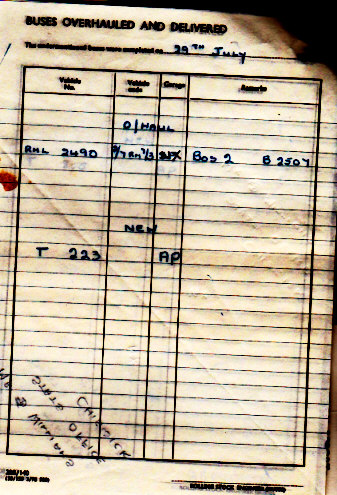 BUSES OVERHAULED AND DELIVERED
The undermentioned buses were completed on 29TH July
Vehicle No. Vehicle code Garage Remarks
O/HAUL
RML 2490 Bos 2 B 2507
NEW
T 223 AP
CHISWICK
STATS OFFICE